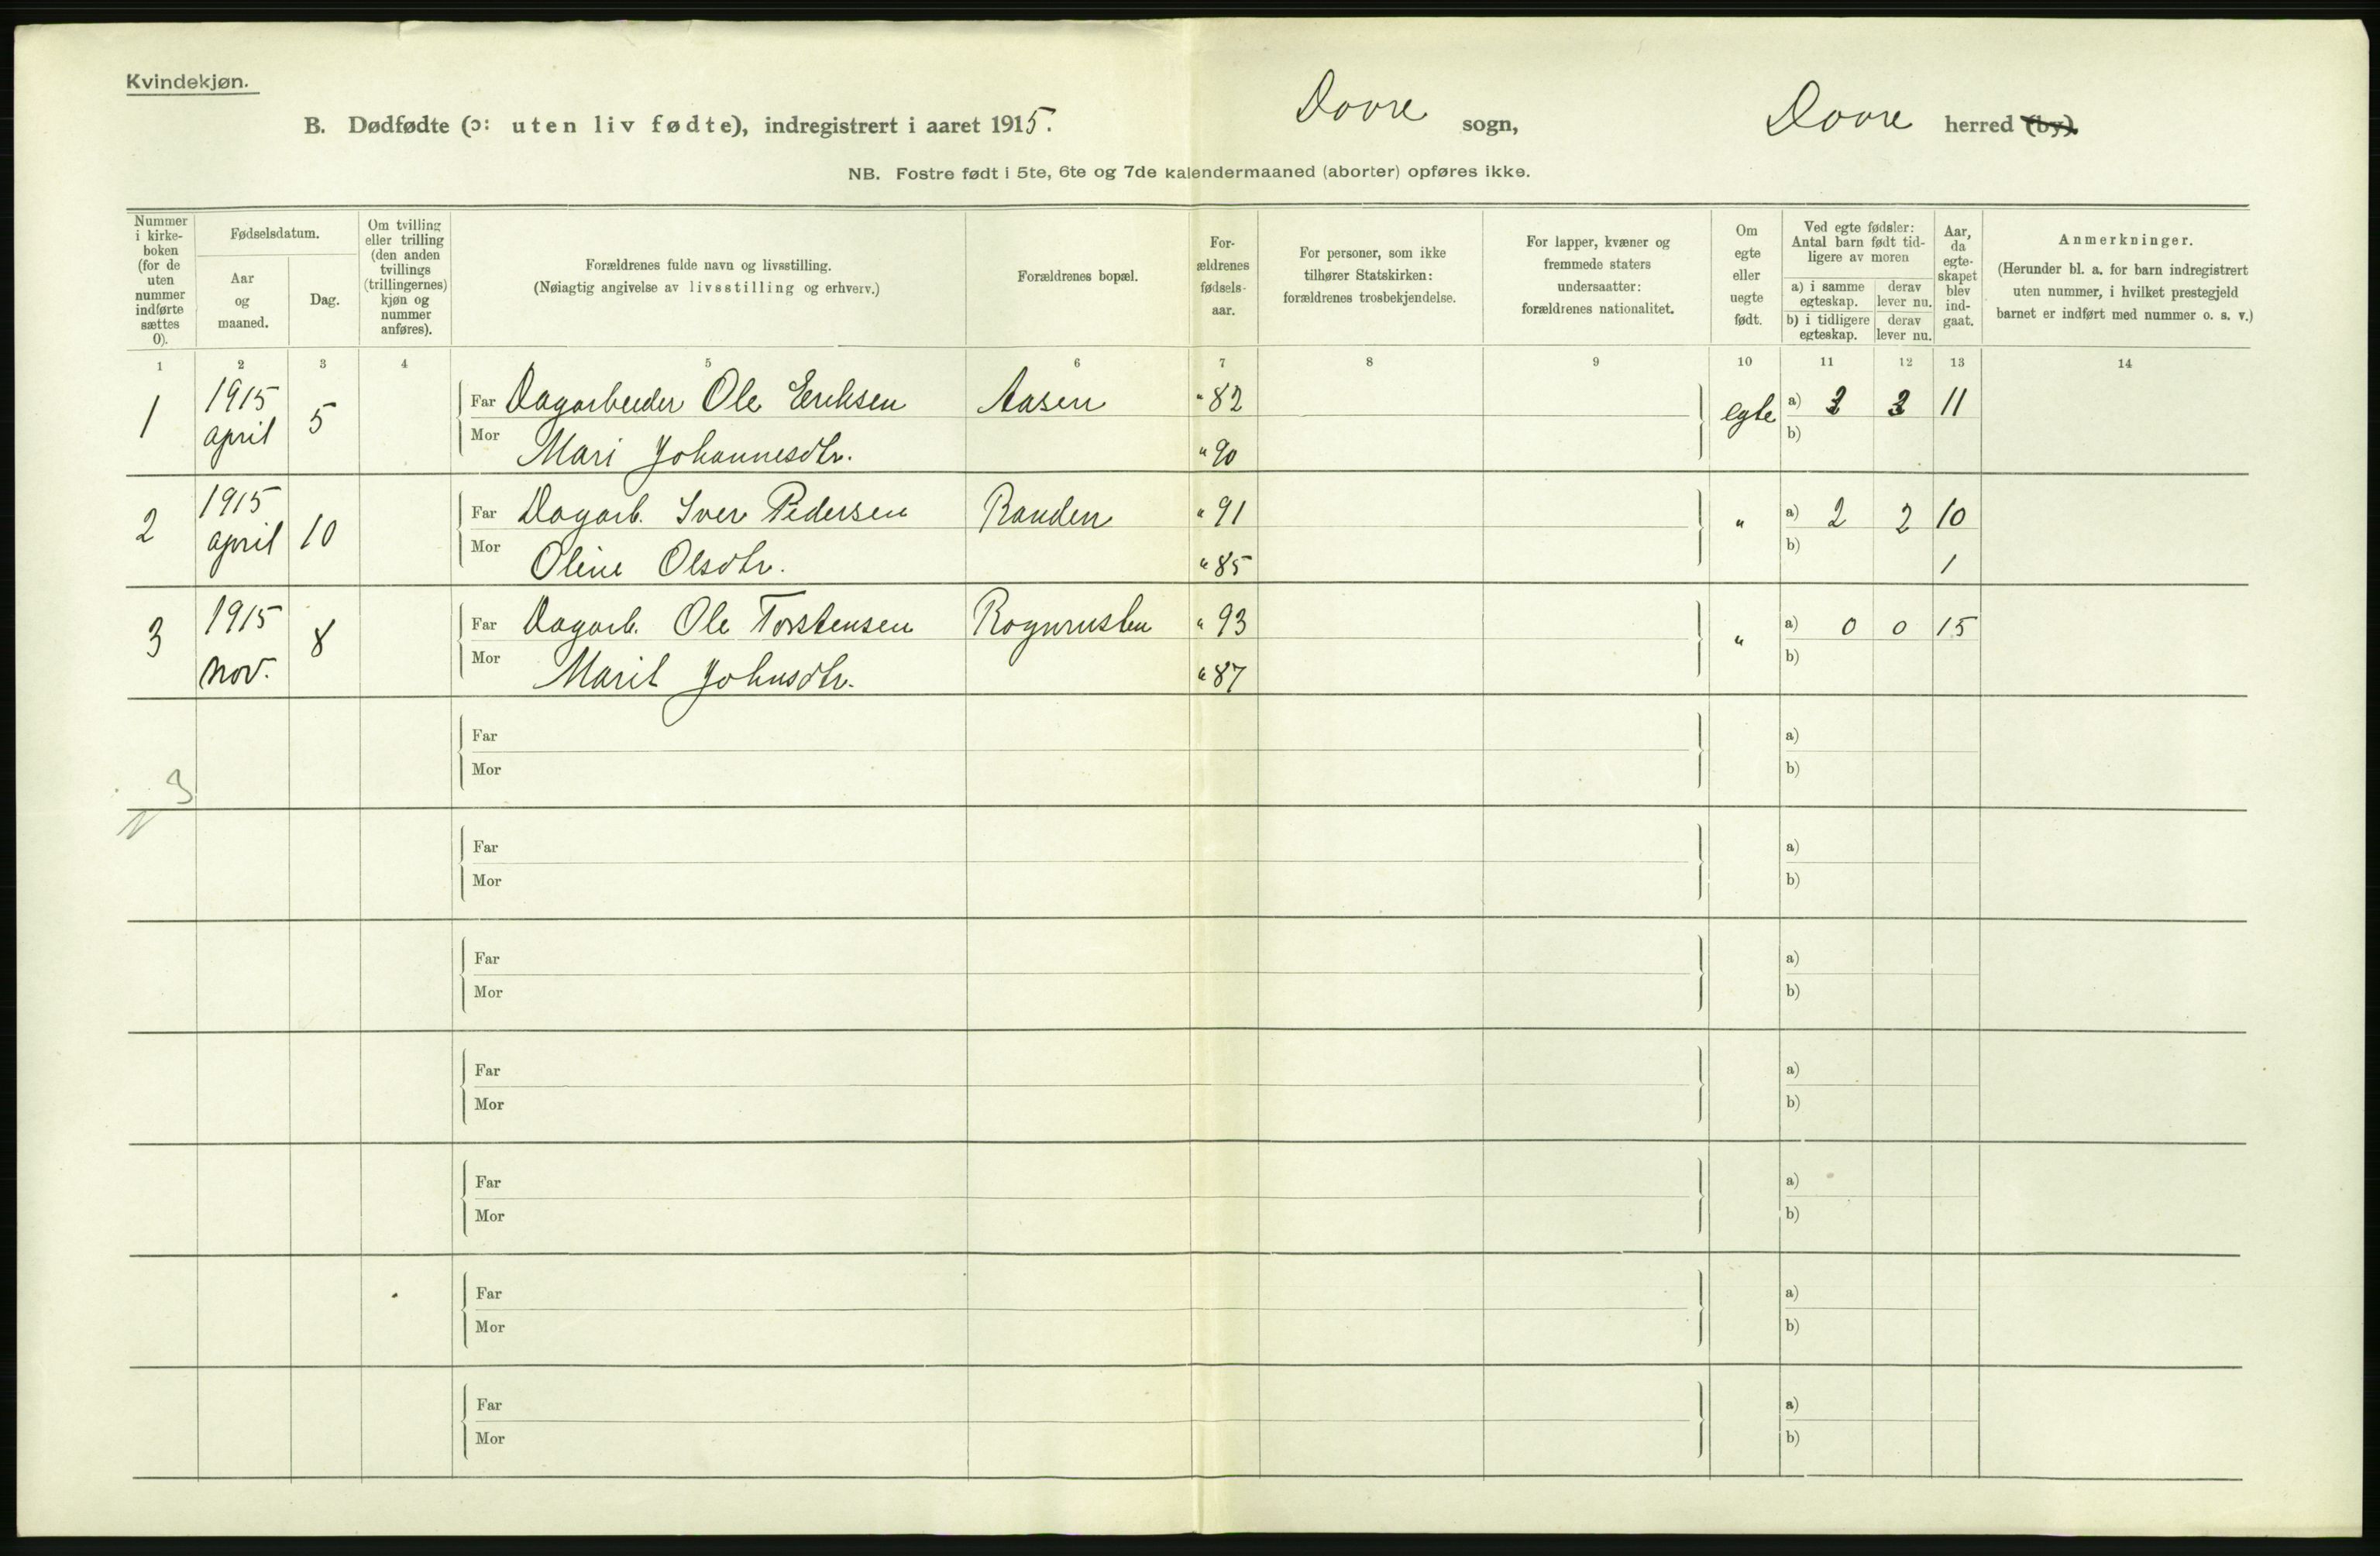 Kvindekjøn.
B. Dødfødte (ɔ: uten liv fødte), indregistrert i aaret 1915. Dovre sogn, Dovre herred (by).
NB. Fostre født i 5te, 6te og 7de kalendermaaned (aborter) opføres ikke.
Nummer i kirke-boken (for de uten nummer indførte sættes 0).
Fødselsdatum.
Aar og maaned.
Dag.
Om tvilling eller trilling (den anden tvillings (trillingernes) kjøn og nummer anføres).
Forældrenes fulde navn og livsstilling.
(Nøiagtig angivelse av livsstilling og erhverv.)
Forældrenes bopæl.
For-ældrenes fødsels-aar.
For personer, som ikke tilhører Statskirken: forældrenes trosbekjendelse.
For lapper, kvæner og fremmede staters undersaatter: forældrenes nationalitet.
Om egte eller uegte født.
Ved egte fødsler: Antal barn født tid-ligere av moren
a) i samme egteskap.
derav lever nu.
b) i tidligere egteskap.
derav lever nu.
Aar, da egte-skapet blev ind-gaat.
Anmerkninger.
(Herunder bl. a. for barn indregistrert uten nummer, i hvilket prestegjeld barnet er indført med nummer o. s. v.)
1 2 3 4 5 6 7 8 9 10 11 12 13 14
1 1915 april 5 Far Dagarbeider Ole Eriksen Aasen "82 egte a) 11
Mor Mari Johannesdtr. "90 b)
2 1915 april 10 Far Dagarb. Iver Pedersen Randen "91 " a) 2 2 10
Mor Oline Olsdtr. "85 b) 1
3 1915 nov. 8 Far Dagarb. Ole Torstensen Rognrusten "93 " a) 0 0 15
Mor Marit Johnsdtr. "87 b)
Far a)
Mor b)
3
Far a)
Mor b)
Far a)
Mor b)
Far a)
Mor b)
Far a)
Mor b)
Far a)
Mor b)
Far a)
Mor b)